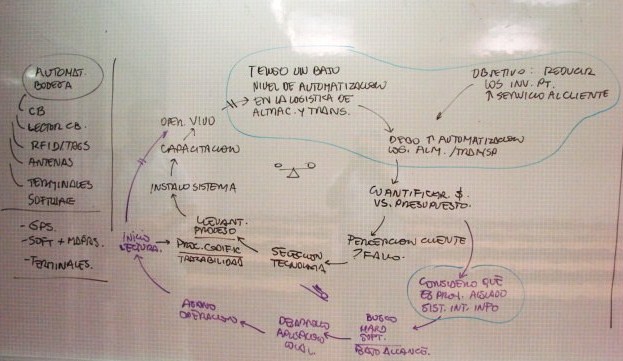 AUTOMAT.
BODEGA
CB
LECTOR CB.
RFID/TAGS
ANTENAS
TERMINALES
SOFTWARE
- GPS.
- SOFT + MAPAS.
- TERMINALES.
TENGO UN BAJO
NIVEL DE AUTOMATIZACION
EN LA LOGISTICA DE
ALMAC. Y TRANS.
OBJETIVO: REDUCIR
LOS INV. PT.
↑ SERVICIO AL CLIENTE
DEBO ↑ AUTOMATIZACION
LOG. ALM. / TRANSP
CUANTIFICAR $
VS. PRESUPUESTO.
PERCEPCION CLIENTE
? FALLO.
SELECCION
TECNOLOGIA
LEVANT.
PROCESO
PROC. CODIFIC
TRAZABILIDAD
INSTALO SISTEMA
CAPACITACION
OPER. VIVO
INICIO
LECTURA.
CONSIDERO QUE
ES PROY. AISLADO
SIST. INT. INFO
BUSCO
HARD
SOFT.
BAJO ALCANCE.
DESARROLLO
APLICACION
LOCAL
OPERACION